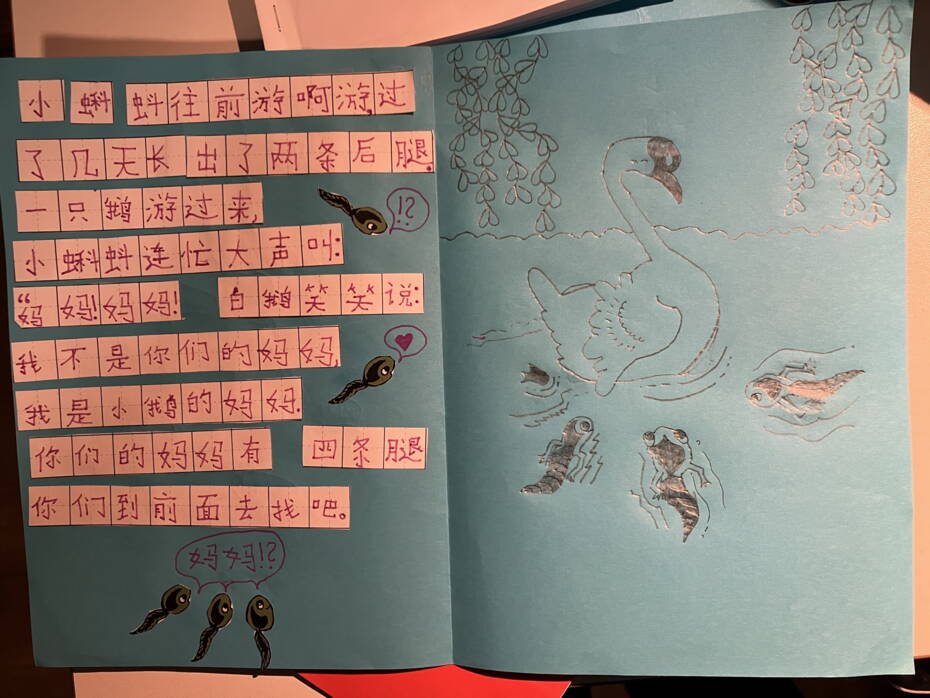 小蝌蚪往前游啊游,过
了几天长出了两条后腿.
一只鹅游过来,
!?
小蝌蚪连忙大声叫:
“妈妈!妈妈! 白鹅笑笑说:
我不是你们的妈妈,
我是小鹅的妈妈.
你们的妈妈有 四条腿
你们到前面去找吧。
妈妈!?